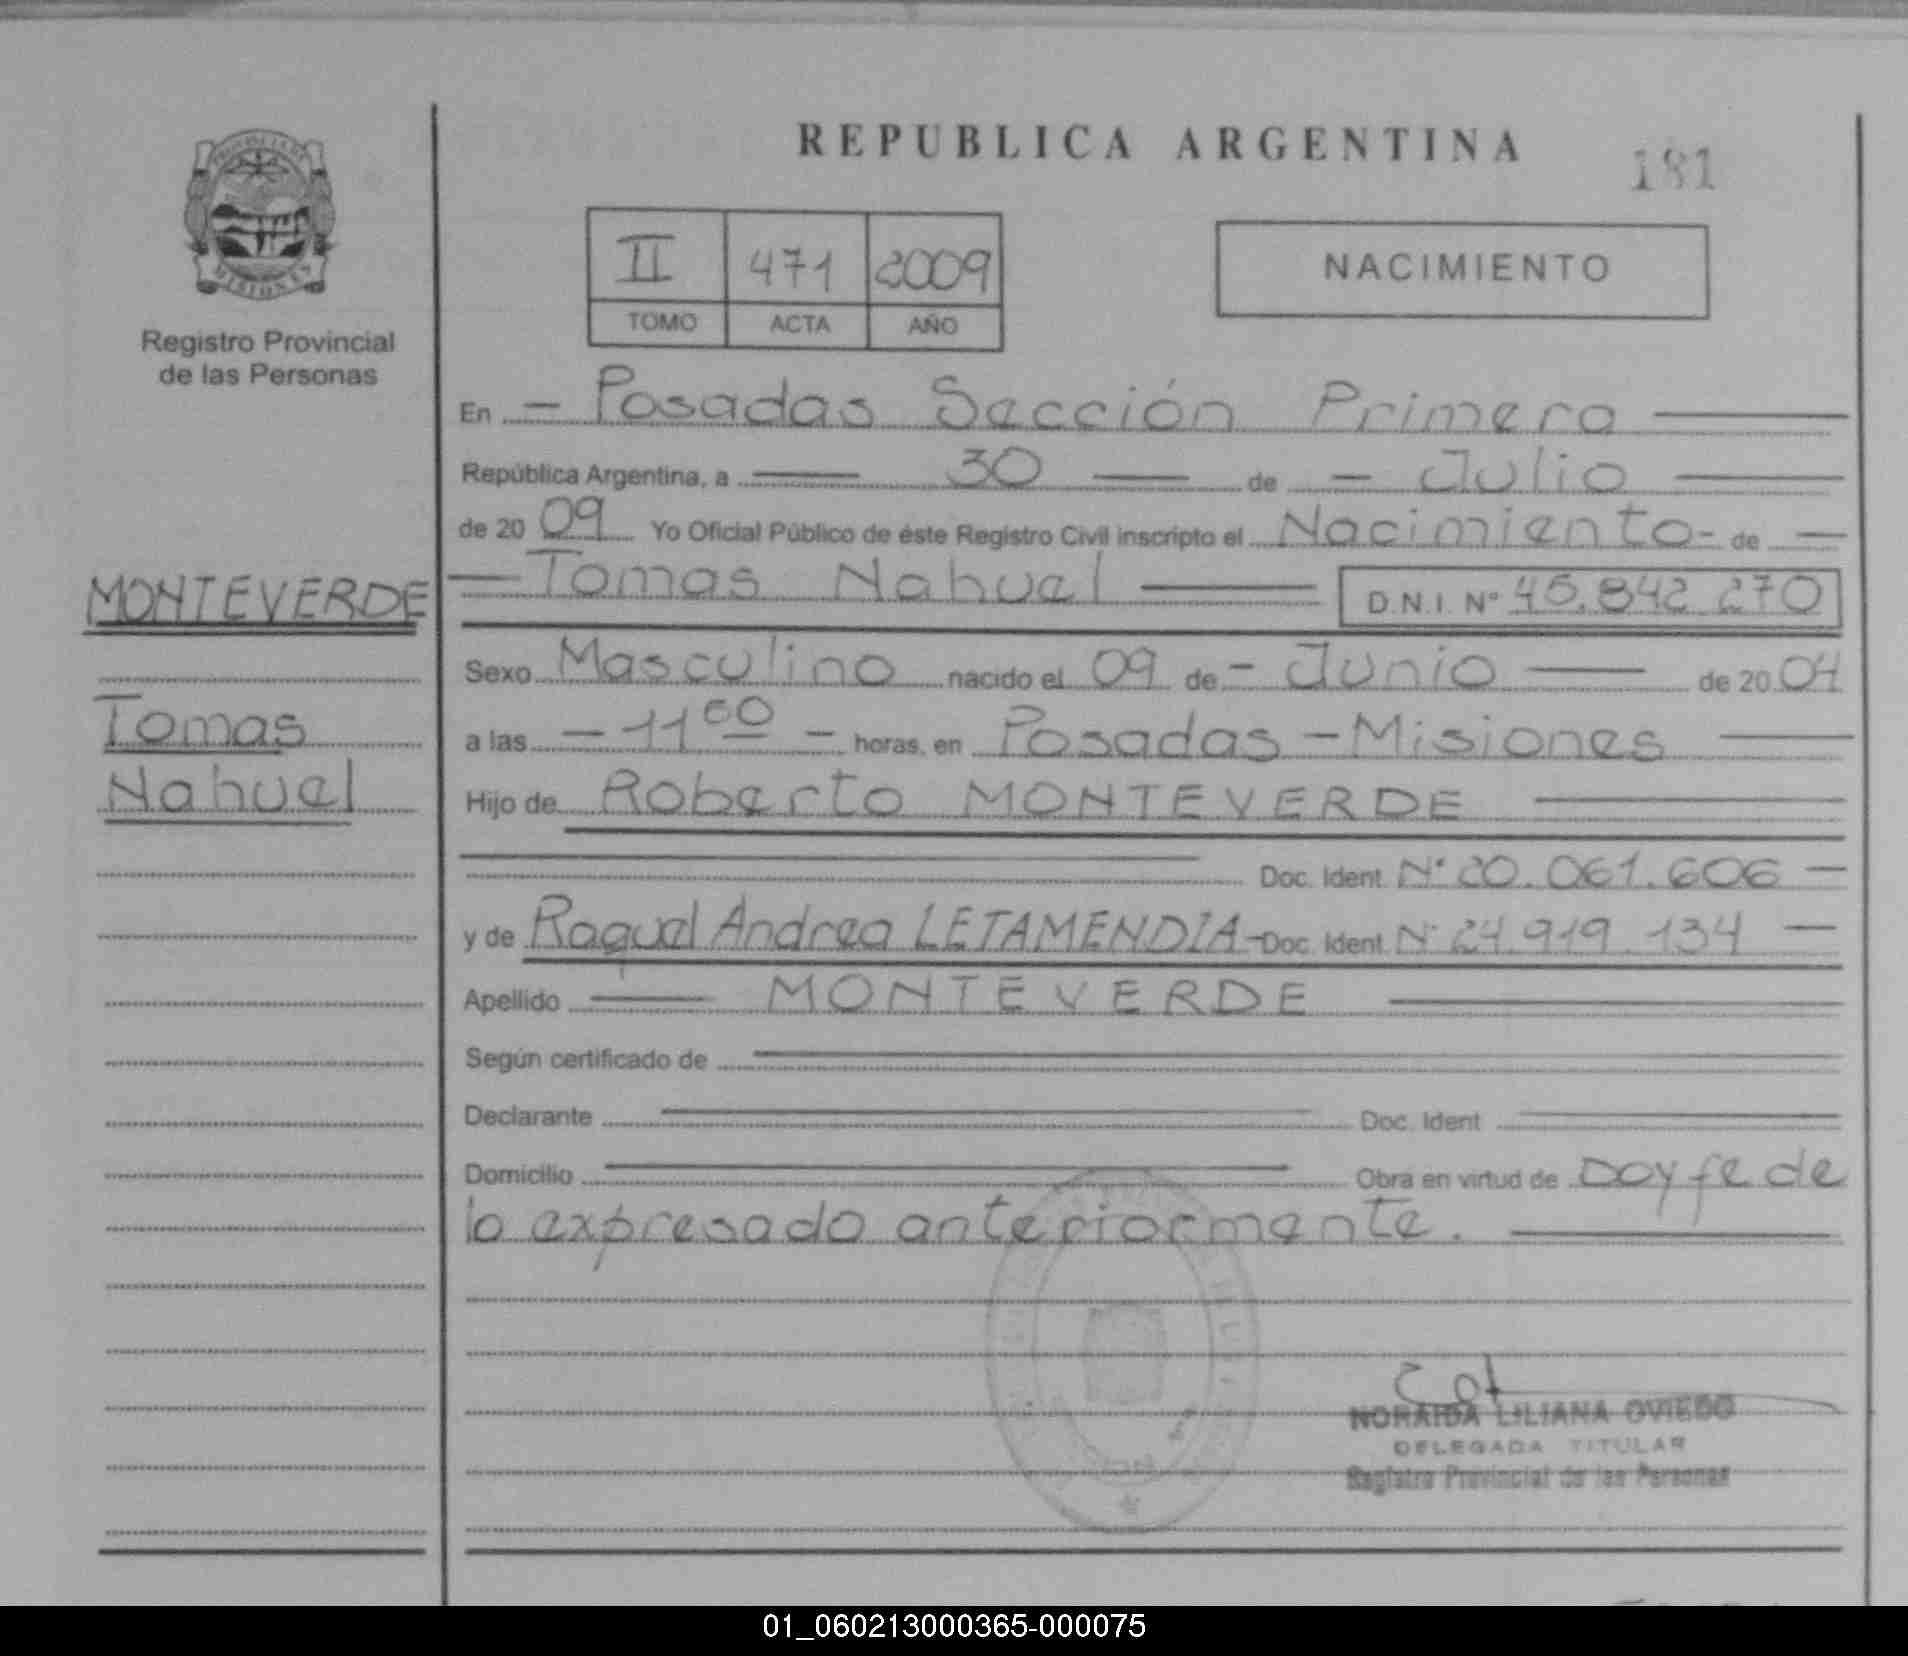 REPUBLICA ARGENTINA
181
PROVINCIA DE
MISIONES
Registro Provincial
de las Personas
II 471 2009
TOMO ACTA AÑO
NACIMIENTO
En - Posadas Sección Primera
República Argentina, a 30 de - Julio
de 20 09 Yo Oficial Público de éste Registro Civil inscripto el Nacimiento - de
Tomas Nahuel D.N.I. Nº 45.842.270
MONTEVERDE
Tomas
Nahuel
Sexo Masculino nacido el 09 de - Junio de 20 04
a las - 11 00 - horas, en Posadas - Misiones
Hijo de Roberto MONTEVERDE
Doc. Ident. Nº 20.061.606 -
y de Raquel Andrea LETAMENDIA - Doc. Ident. Nº 24.919.134 -
Apellido MONTEVERDE
Según certificado de
Declarante Doc. Ident
Domicilio Obra en virtud de Doy fe de
lo expresado anteriormente.
NORAIDA LILIANA OVIEDO
DELEGADA TITULAR
Registro Provincial de las Personas
01_060213000365-000075